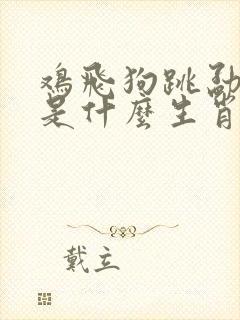 鸡飛狗跳勐
是什麼生肖
戴立